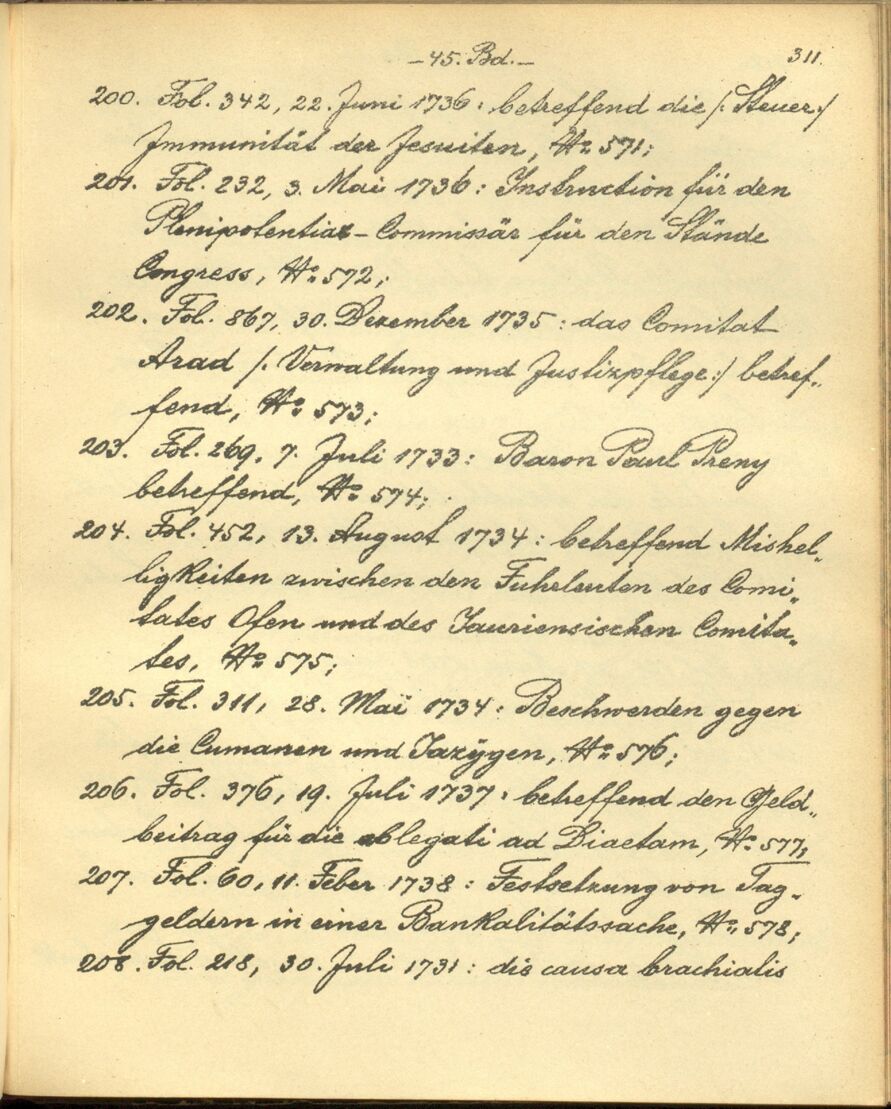 – 45. Bd. –
311.
200. Fol. 342, 22. Juni 1736: betreffend die /: Steuer :/
Immunität der Jesuiten, No 571;
201. Fol. 232, 3. Mai 1736: Instruction für den
Plenipotentiar-Commissär für den Stände
Congress, No 572;
202. Fol. 867, 30. Dezember 1735: das Comitat
Arad /: Verwaltung und Justizpflege :/ betref„
fend, No 573;
203. Fol. 269, 7. Juli 1733: Baron Paul Preny
betreffend, No 574;
204. Fol. 452, 13. August 1734: betreffend Mishel„
ligkeiten zwischen den Fuhrleuten des Comi„
tates Ofen und des Jauriensischen Comita„
tes, No 575;
205. Fol. 311, 28. Mai 1734: Beschwerden gegen
die Cumanen und Jazÿgen, No 576;
206. Fol. 376, 19. Juli 1737: betreffend den Geld„
beitrag für die ablegati ad Diaetam, No 577;
207. Fol. 60, 11. Feber 1738: Festsetzung von Tag„
geldern in einer Bankalitätssache, No 578;
208. Fol. 218, 30. Juli 1731: die causa brachialis